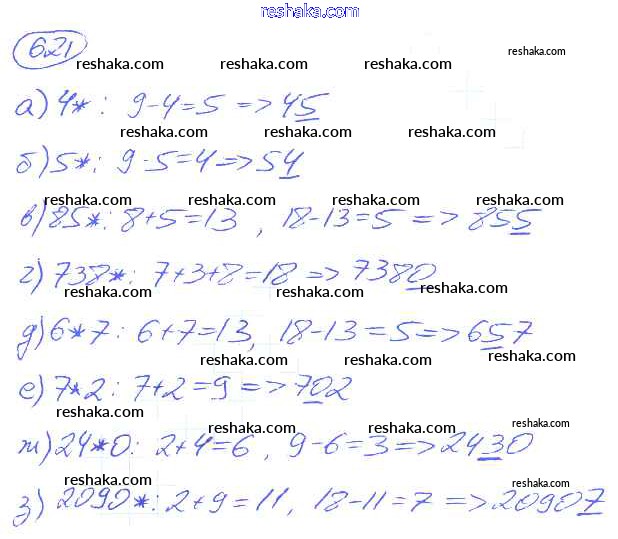 reshaka.com
621
reshaka.com reshaka.com reshaka.com reshaka.com
а) 4*: 9-4=5 => 45
reshaka.com reshaka.com reshaka.com
б) 5*: 9-5=4 => 54
reshaka.com reshaka.com reshaka.com reshaka.com
в) 85*: 8+5=13, 18-13=5 => 855
г) 738*: 7+3+8=18 => 7380
reshaka.com reshaka.com reshaka.com
д) 6*7: 6+7=13, 18-13=5 => 657
reshaka.com reshaka.com reshaka.com
е) 7*2: 7+2=9 => 702
reshaka.com reshaka.com reshaka.com reshaka.com
ж) 24*0: 2+4=6, 9-6=3 => 2430
reshaka.com reshaka.com reshaka.com reshaka.com
з) 2090*: 2+9=11, 18-11=7 => 20907
reshaka.com reshaka.com reshaka.com reshaka.com